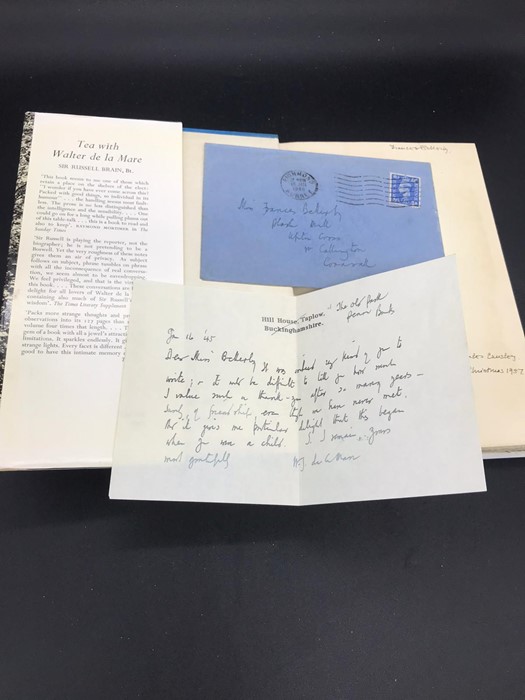 Tea with
Walter de la Mare
SIR RUSSELL BRAIN, Bt.
'This book seems to me one of those which
retain a place on the shelves of the
"I wonder if you have ever come across this?
Packed with good things, as individual in its
humour" . . . the handling seems near fault-
less. The prose is no less distinguished than
the intelligence and the sensibility. . . . One
could go on for a long while pulling plums out
of this table-talk . . . this is a book to read and
also to keep'. RAYMOND MORTIMER in The
Sunday Times
'Sir Russell is playing the reporter, not the
biographer; he is not pretending to be a
Boswell. Yet the very roughness of these notes
gives them an air of privacy. As subject
follows on subject, phrase tumbles on phrase
with all the inconsequence of real conversa-
tion, we seem almost to be eavesdropping.
We feel privileged, and that is the
this book. . . . These conversations are
delight for all lovers of Walter de la
containing also much of Sir Russell
wisdom'. The Times Literary Supplement
'Packs more strange thoughts and
observations into its 115 pages than
volume four times that length. . . .
gem of a book with all a jewel's
limitations. It sparkles endlessly. It
strange lights. Every facet is different
good to have this intimate memory
Miss
Upton Cross
nr Callington
Cornwall
Hill House, Taplow,
Buckinghamshire.
The Old Park
Penn Bucks
Jan 16 '45
Dear Miss It was indeed very kind of you to
write; & it would be difficult to tell you how much
I value such a thank-you after so many years –
of friendship even though we have never met.
it gives me particular delight that this began
when you were a child. I remain, Yours
most gratefully
W J de la Mare
Christmas 1957